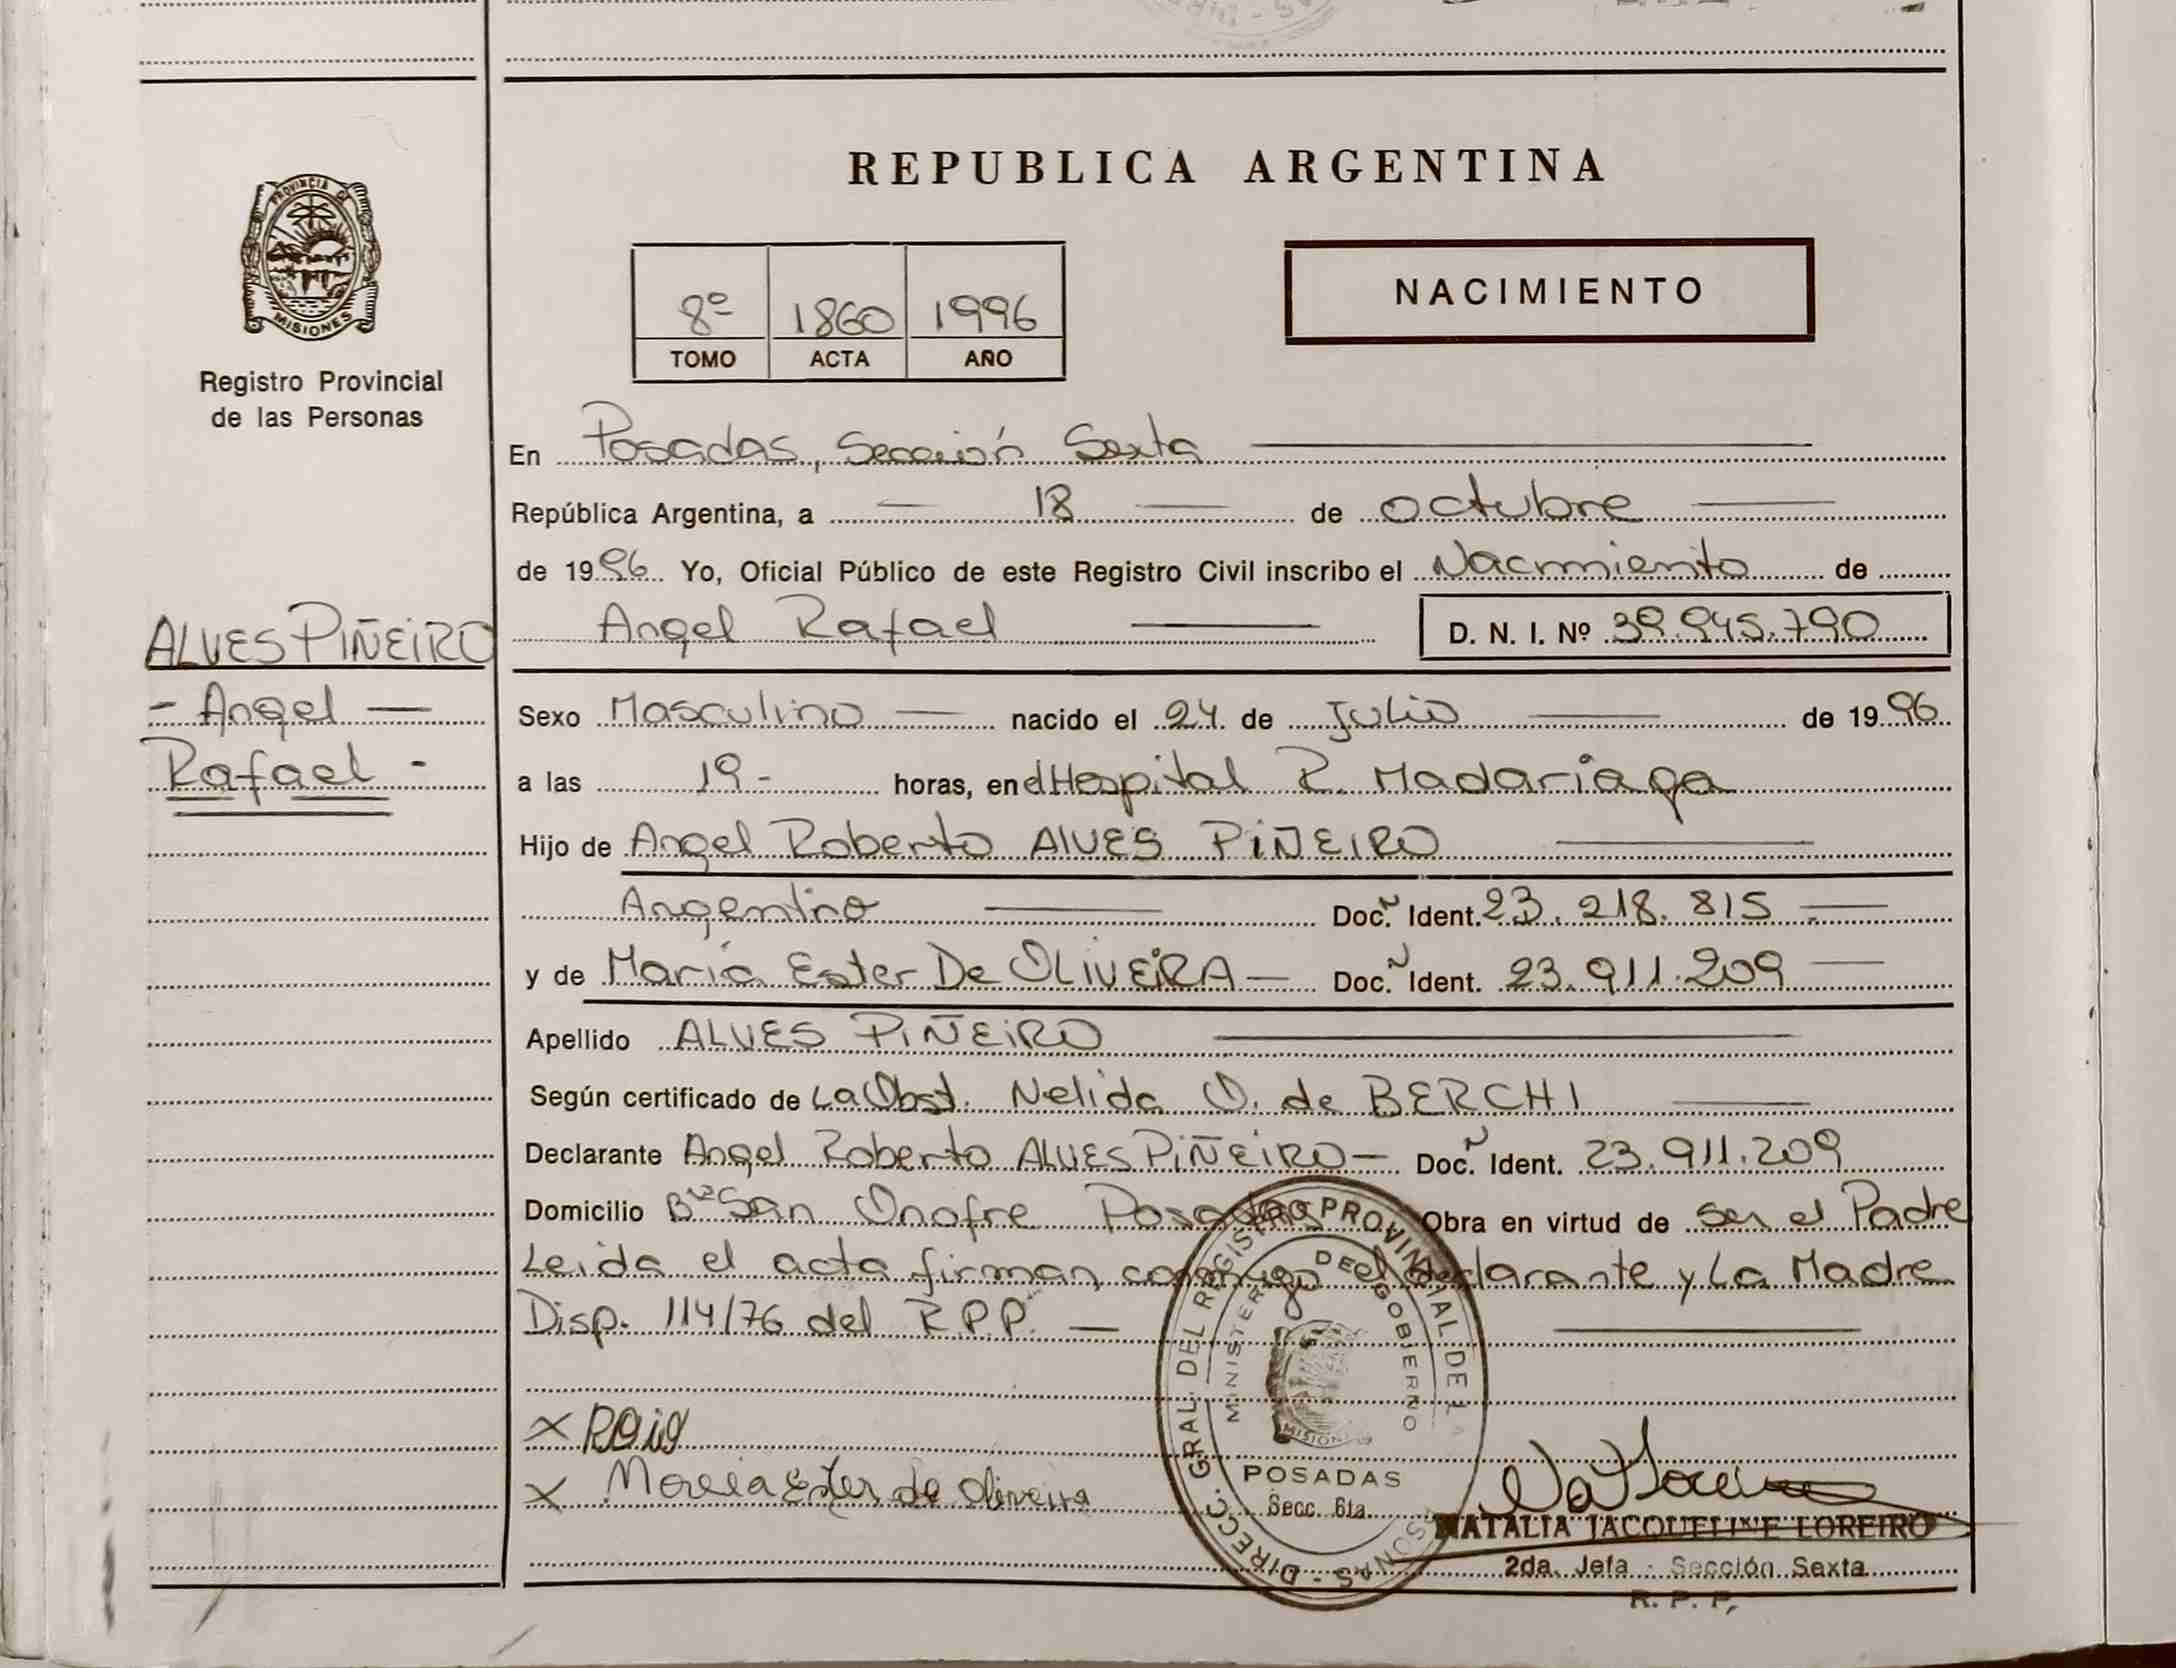 REPUBLICA ARGENTINA
PROVINCIA DE
MISIONES
Registro Provincial
de las Personas
8º 1860 1996
TOMO ACTA AÑO
NACIMIENTO
En Posadas, Sección Sexta
República Argentina, a 18 de octubre
de 1996 Yo, Oficial Público de este Registro Civil inscribo el Nacimiento de
ALVES PIÑEIRO
- Angel -
Rafael -
Angel Rafael D. N. I. Nº 39.945.790
Sexo Masculino nacido el 24 de Julio de 1996
a las 19- horas, en el Hospital R. Madariaga
Hijo de Angel Roberto ALVES PIÑEIRO
Argentino Doc. Ident. 23.218.815
y de María Ester De OLIVEIRA Doc. Ident. 23.911.209
Apellido ALVES PIÑEIRO
Según certificado de La Obst. Nelida O. de BERCHI
Declarante Angel Roberto ALVES PIÑEIRO Doc. Ident. 23.911.209
Domicilio Bº San Onofre Posadas Obra en virtud de ser el Padre
Leida el acta firman conmigo el declarante y La Madre
Disp. 114/76 del R.P.P.
DIRECC. GRAL. DEL REGISTRO PROVINCIAL DE LAS PERSONAS
MINISTERIO DE GOBIERNO
MISIONES
POSADAS
Secc. 6ta.
X
X Maria Ester de Oliveira
NATALIA JACQUELINE LOREIRO
2da. Jefa - Sección Sexta
R. P. P.